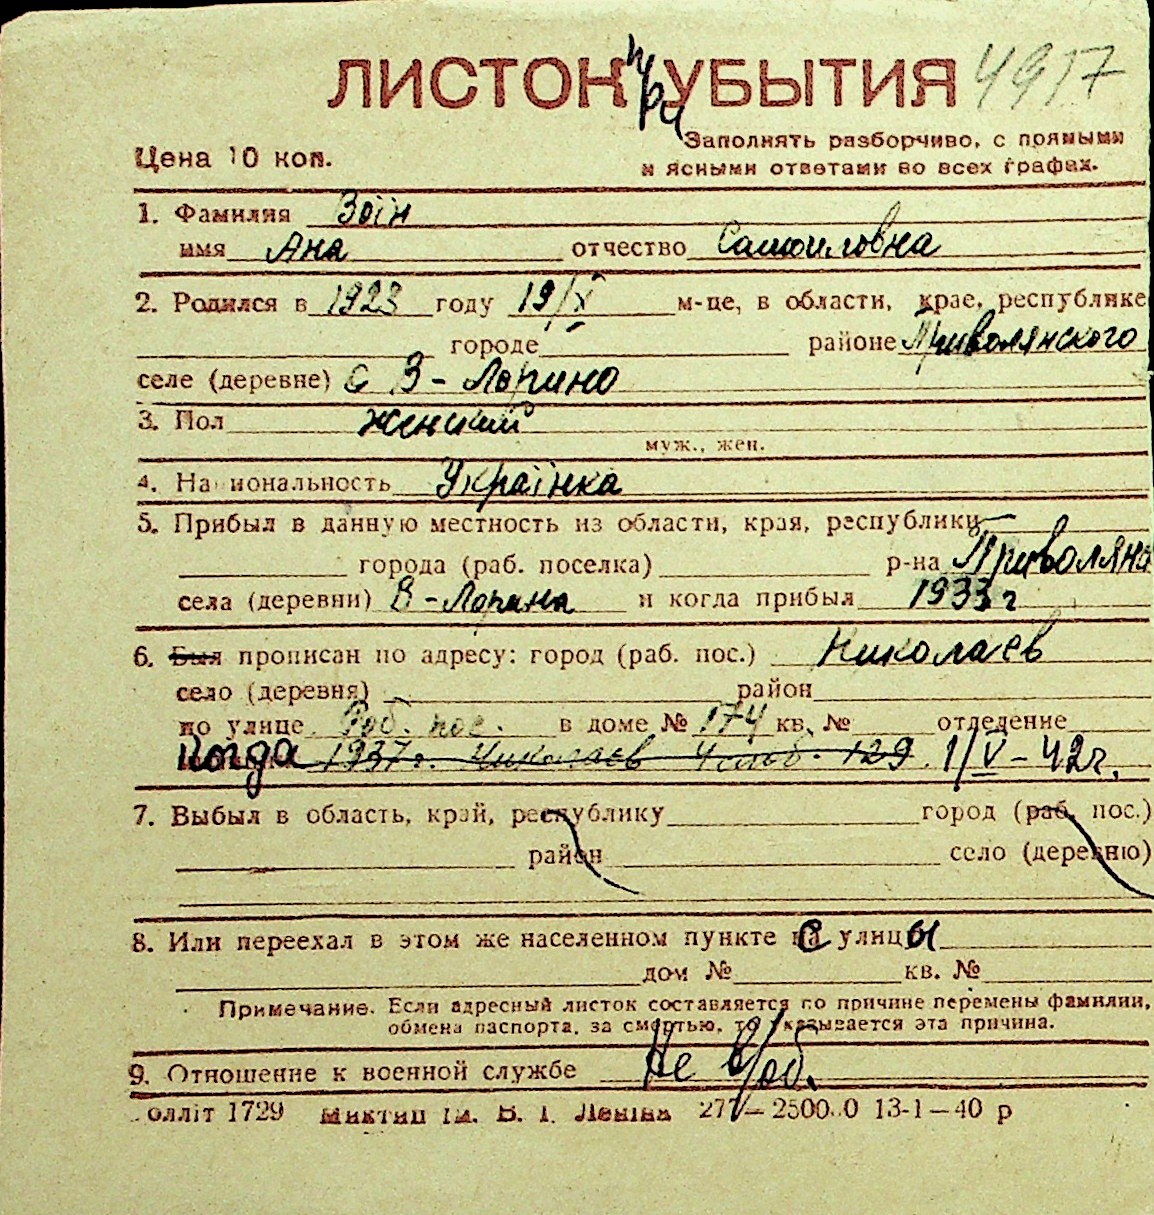 ЛИСТОК при УБЫТИЯ 4917
Цена 10 коп.
Заполнять разборчиво, с прямыми
и ясными ответами во всех графах.
1. Фамилия Зоїн
имя Ана отчество Самоиловна
2. Родился в 1923 году 19/X м-це, в области, крае, республике
городе районе Приволянского
селе (деревне) с В-Лорино
3. Пол Женский
муж., жен.
4. Национальность Українка
5. Прибыл в данную местность из области, края, республики —
города (раб. поселка) р-на Приволяна
села (деревни) В-Лорина и когда прибыл 1933 г
6. Был прописан по адресу: город (раб. пос.) Николаев
село (деревня) район
по улице Роб. пос. в доме № 174 кв. № отделение
Когда 1937 г. Николаев 129 1/V-42 г.
7. Выбыл в область, край, республику город (раб. пос.)
район село (деревню)
8. Или переехал в этом же населенном пункте с улицы
дом № кв. №
Примечание. Если адресный листок составляется по причине перемены фамилии,
обмена паспорта, за смертью, то указывается эта причина.
9. Отношение к военной службе Не в/об.
олліт 1729 ім. В. І. Леніна 277—2500 0 13-1—40 р